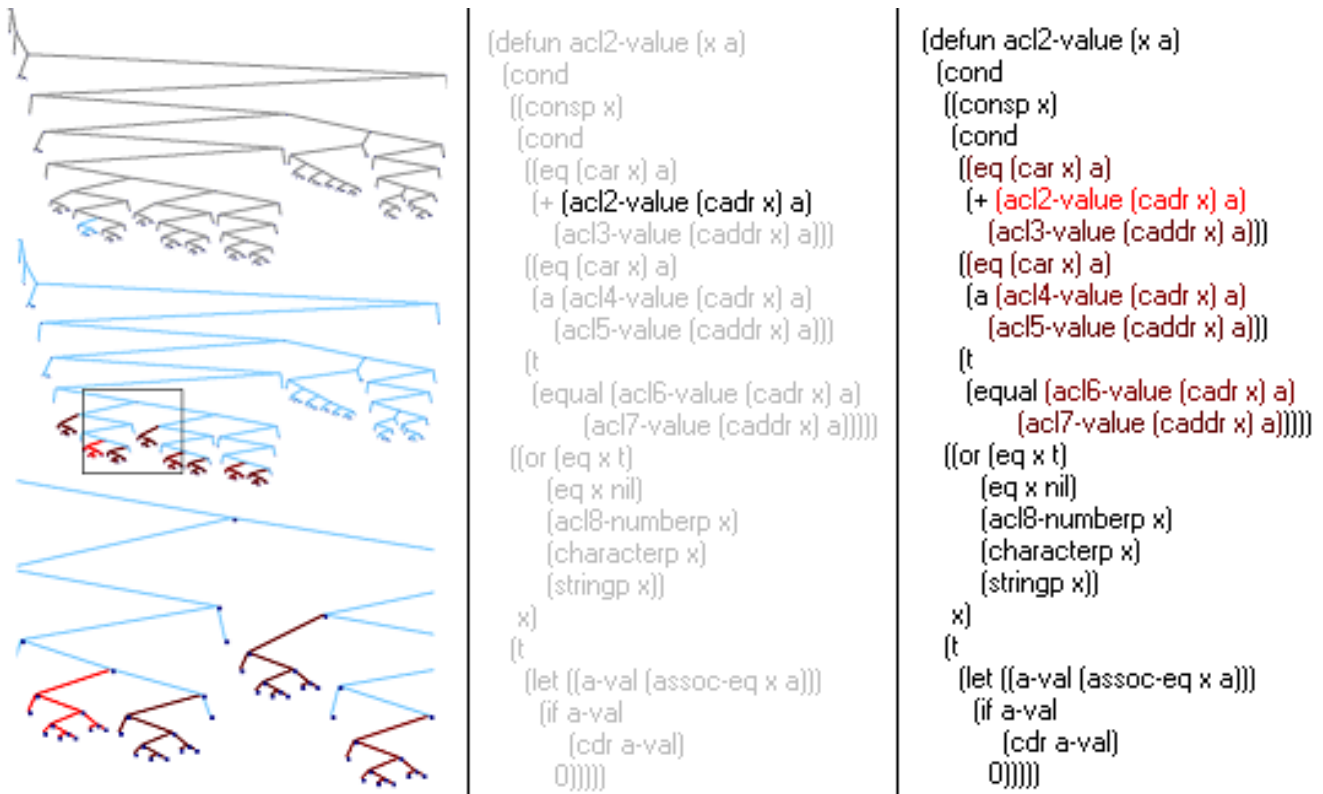 (defun acl2-value (x a)
(cond
((consp x)
(cond
((eq (car x) a)
(+ (acl2-value (cadr x) a)
(acl3-value (caddr x) a)))
((eq (car x) a)
(a (acl4-value (cadr x) a)
(acl5-value (caddr x) a)))
(t
(equal (acl6-value (cadr x) a)
(acl7-value (caddr x) a)))))
((or (eq x t)
(eq x nil)
(acl8-numberp x)
(characterp x)
(stringp x))
x)
(t
(let ((a-val (assoc-eq x a)))
(if a-val
(cdr a-val)
0)))))
(defun acl2-value (x a)
(cond
((consp x)
(cond
((eq (car x) a)
(+ (acl2-value (cadr x) a)
(acl3-value (caddr x) a)))
((eq (car x) a)
(a (acl4-value (cadr x) a)
(acl5-value (caddr x) a)))
(t
(equal (acl6-value (cadr x) a)
(acl7-value (caddr x) a)))))
((or (eq x t)
(eq x nil)
(acl8-numberp x)
(characterp x)
(stringp x))
x)
(t
(let ((a-val (assoc-eq x a)))
(if a-val
(cdr a-val)
0)))))